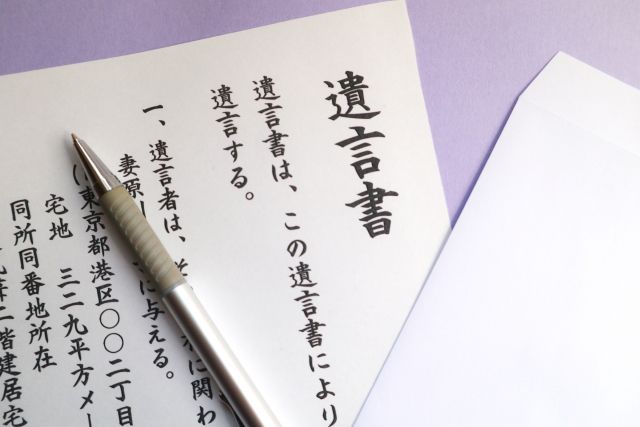 遺言書
遺言書は、この遺言書により
遺言する。
一、遺言者は、そ に関わ
妻原 に与える。
(東京都港区〇〇二丁目
宅地　三二九平方メー
同所同番地所在
葺二階建居宅